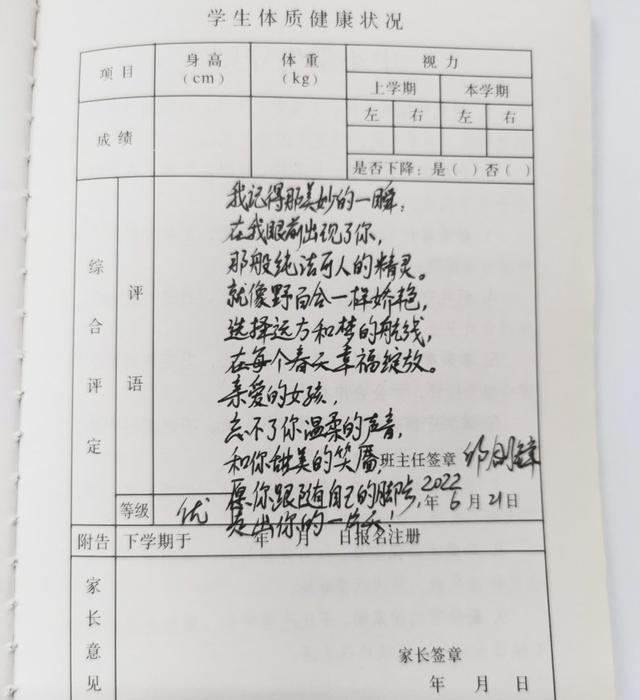 学生体质健康状况
项目
身高
(cm)
体重
(kg)
视力
上学期
本学期
左
右
左
右
成绩
是否下降：是（ ）否（ ）
综合评定
评语
我记得那美妙的一瞬：
在我眼前出现了你，
那般纯洁可人的精灵。
就像野百合一样娇艳，
选择远方和梦的航线，
在每个春天幸福绽放。
亲爱的女孩，
忘不了你温柔的声音，
和你甜美的笑靥，
班主任签章
愿你跟随自己的脚步，
走出你的一片
2022年6月21日
等级
优
附告
下学期于 年 月 日报名注册
家长意见
家长签章
年 月 日